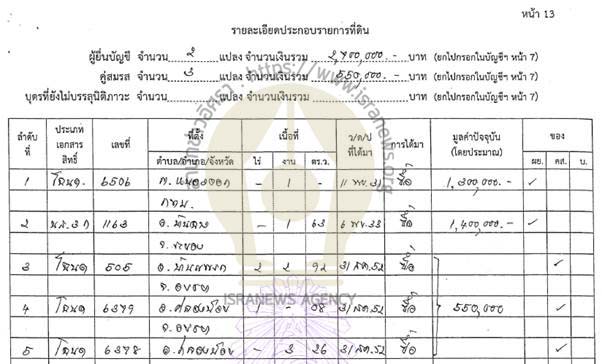 หน้า 13
รายละเอียดประกอบรายการที่ดิน
ผู้ยื่นบัญชี จำนวน 2 แปลง จำนวนเงินรวม 2,700,000.- บาท (ยกไปกรอกในบัญชีฯ หน้า 7)
คู่สมรส จำนวน 3 แปลง จำนวนเงินรวม 550,000.- บาท (ยกไปกรอกในบัญชีฯ หน้า 7)
บุตรที่ยังไม่บรรลุนิติภาวะ จำนวน แปลง จำนวนเงินรวม บาท (ยกไปกรอกในบัญชีฯ หน้า 7)
ลำดับที่ ประเภทเอกสารสิทธิ์ เลขที่ ที่ตั้ง เนื้อที่ ว/ด/ป ที่ได้มา การได้มา มูลค่าปัจจุบัน (โดยประมาณ) ของ
ตำบล/อำเภอ/จังหวัด ไร่ งาน ตร.ว. ผย. คส. บ.
1 โฉนด 6506 - 1 - 11 31 ซื้อ 1,300,000.- ✓
กทม.
2 น.ส.3ก 1163 - 1 63 6 33 ซื้อ 1,400,000.- ✓
จ. ระยอง
3 โฉนด 505 2 2 92 31 52 ซื้อ ✓
4 โฉนด 6379 1 - 08 31 52 ซื้อ 550,000 ✓
5 โฉนด 6378 - 3 26 31 52 ซื้อ ✓
สำนักข่าวอิศรา : https://www.isranews.org
ISRANEWS AGENCY